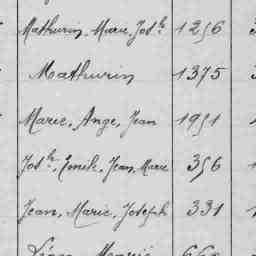 Mathurin, Marie, Josh. 1256
Mathurin 1375
Marie, Ange, Jean 1951
Josh, Emile, Jean, Marie 356
Jean, Marie, Joseph 331
Marie